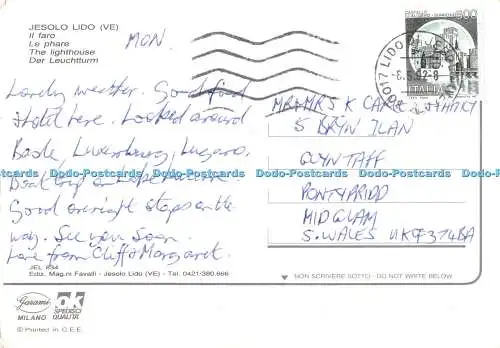 JESOLO LIDO (VE)
Il faro
Le phare
The lighthouse
Der Leuchtturm
MON.
Lovely weather. Good food
Hotel here. Looked around
Basle, Luxembourg, Lugano.
Boat trip on Lake
Good overnight stops on the
way. See you soon.
Love from Cliff & Margaret.
JEL R34
Ediz. Mag.m Favalli - Jesolo Lido (VE) - Tel. 0421-380.666
Garami
MILANO
ok
SPEDISCI
QUALITÀ
© Printed in C.E.E.
600
ITALIA
30017 LIDO DI JESOLO
-6.92-8
MR & MRS K & FAMILY
5 BRYN ILAN
GLYNTAFF
PONTYPRIDD
MID GLAM
S. WALES UK CF37 4BA
NON SCRIVERE SOTTO - DO NOT WRITE BELOW
Dodo-Postcards Dodo-Postcards Dodo-Postcards Dodo-Postcards